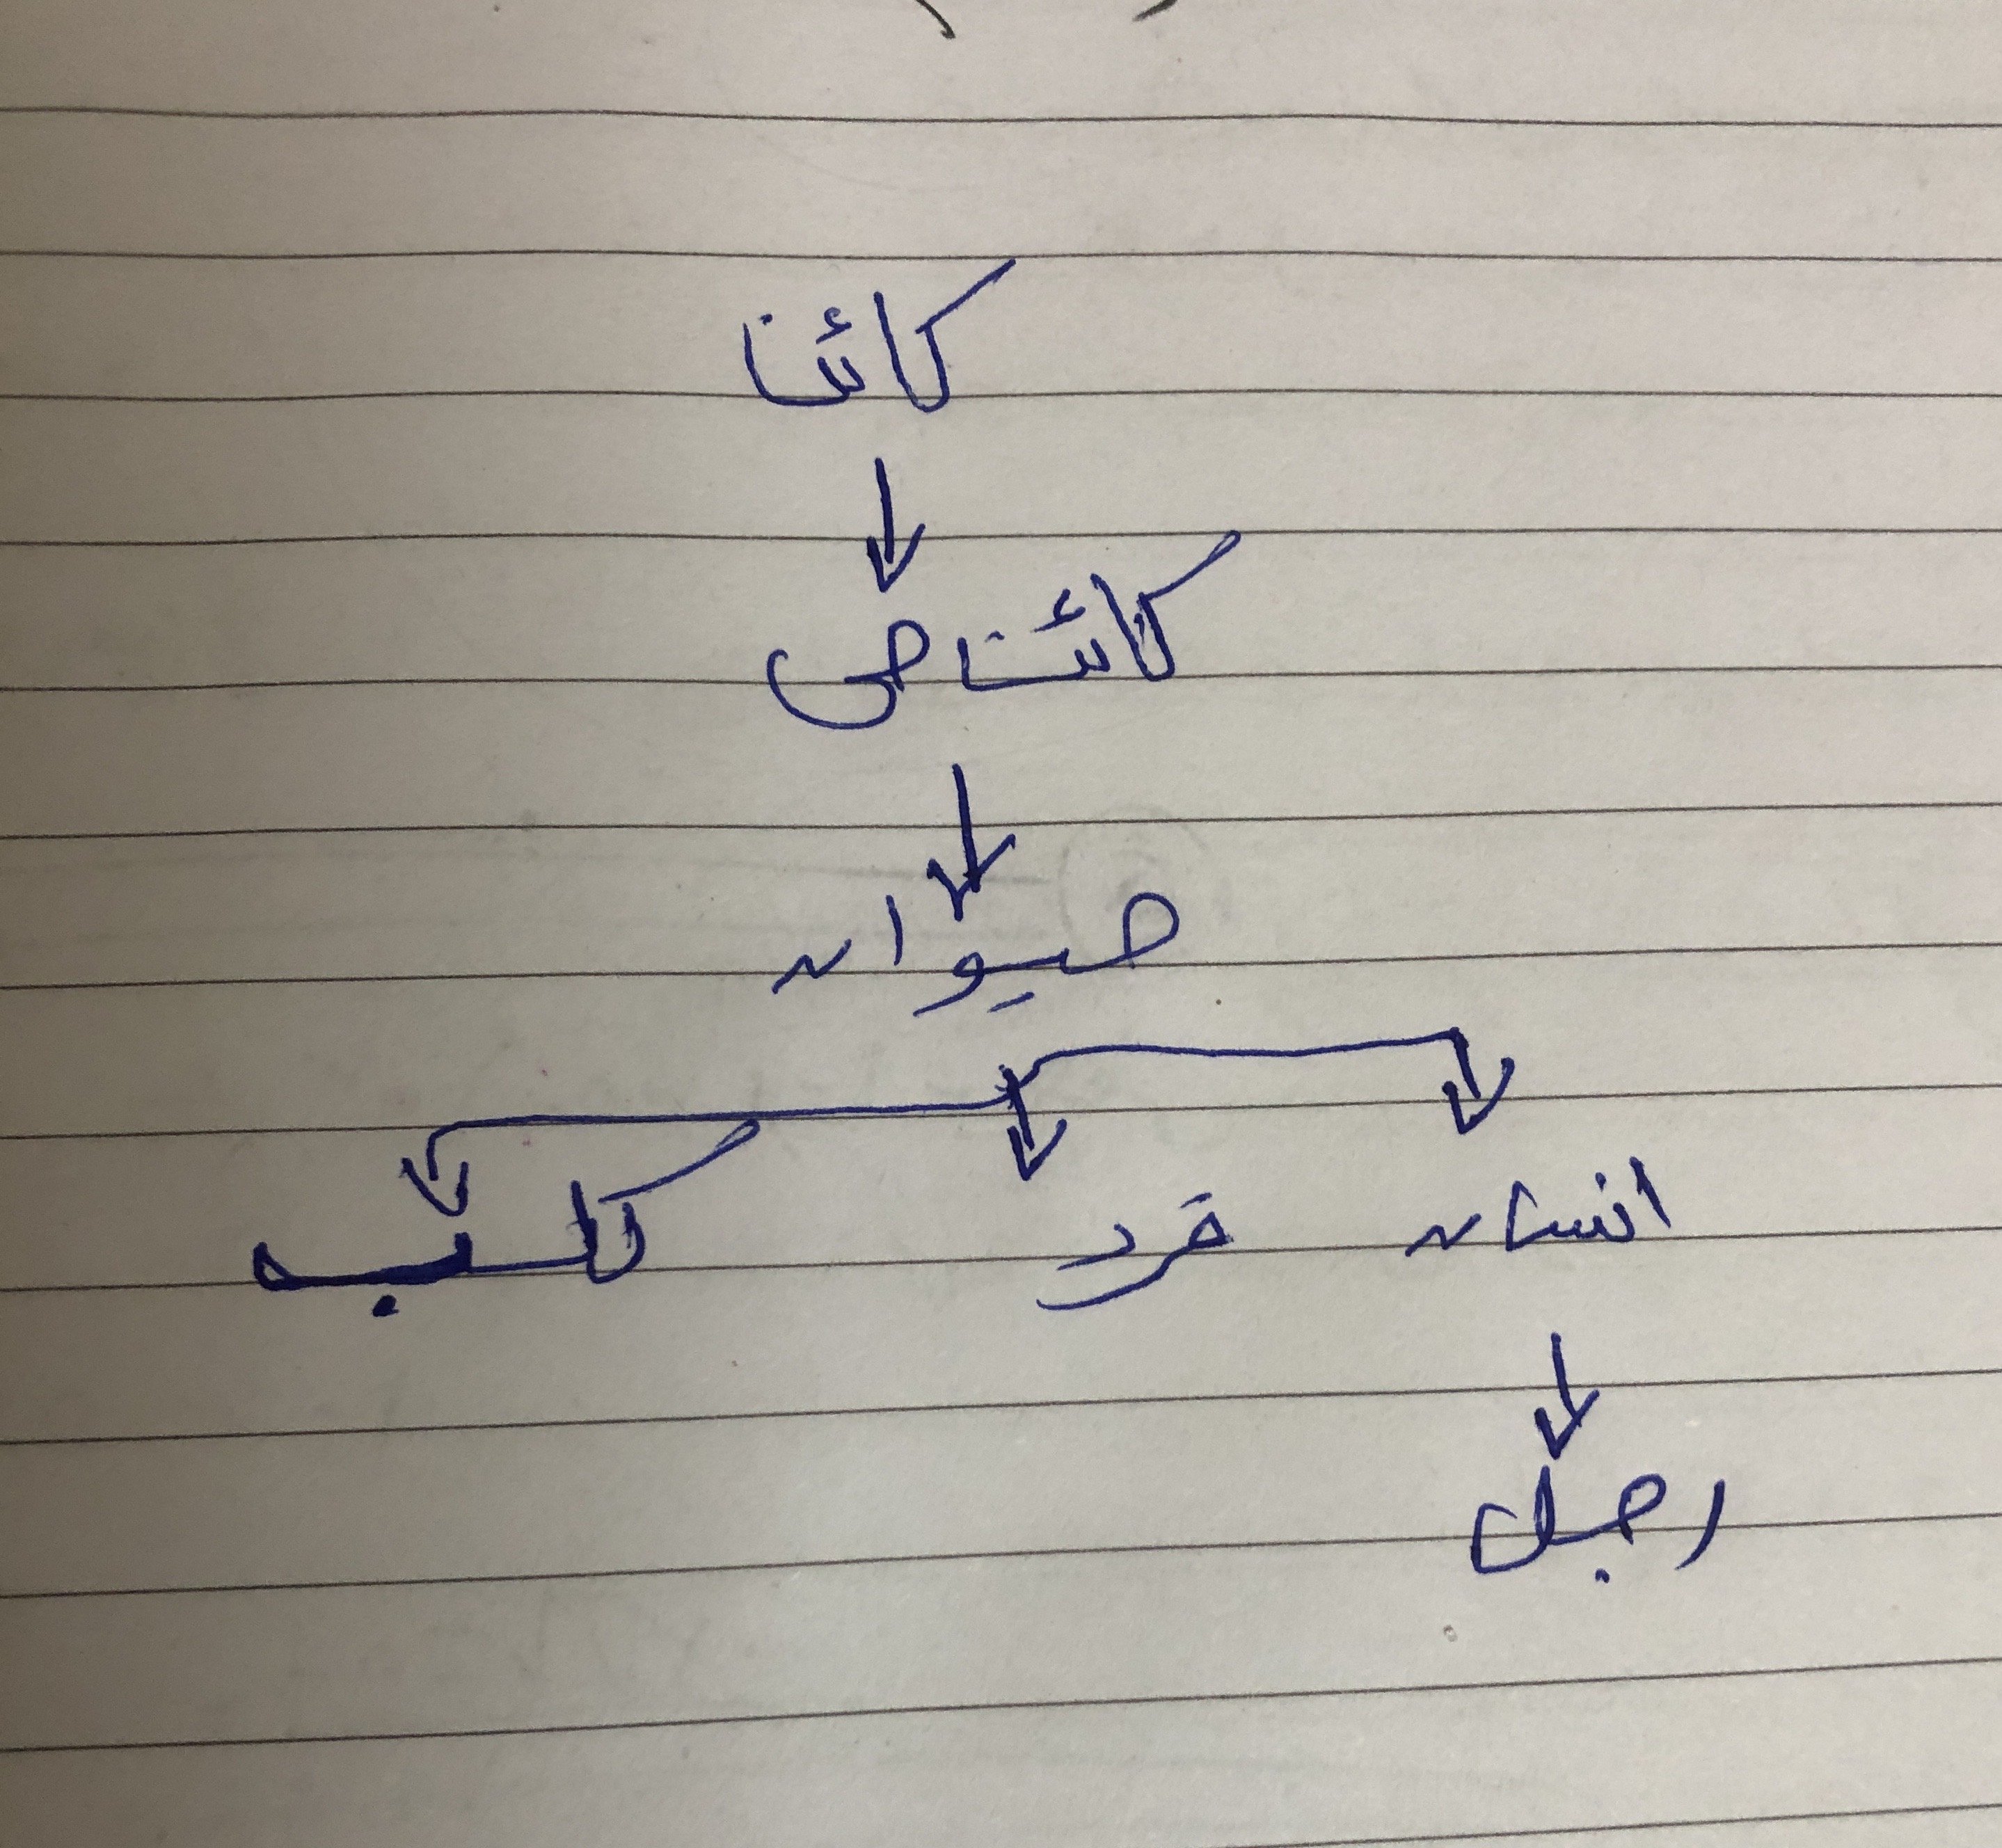 كائن
كائن حي
حيوان
انسان قرد كلب
رجل